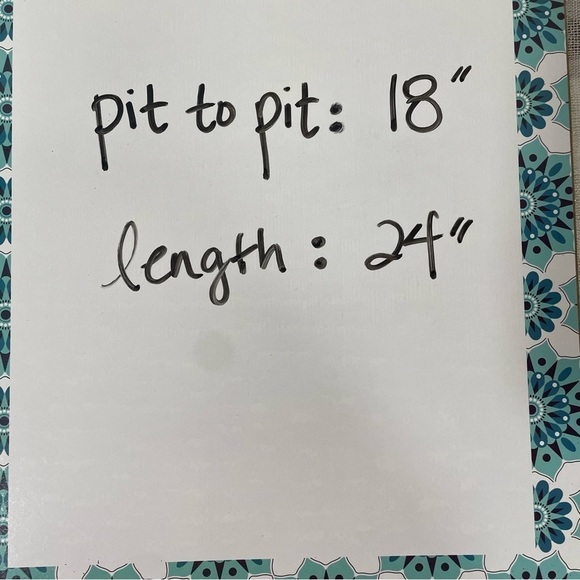 pit to pit: 18"
length: 24"